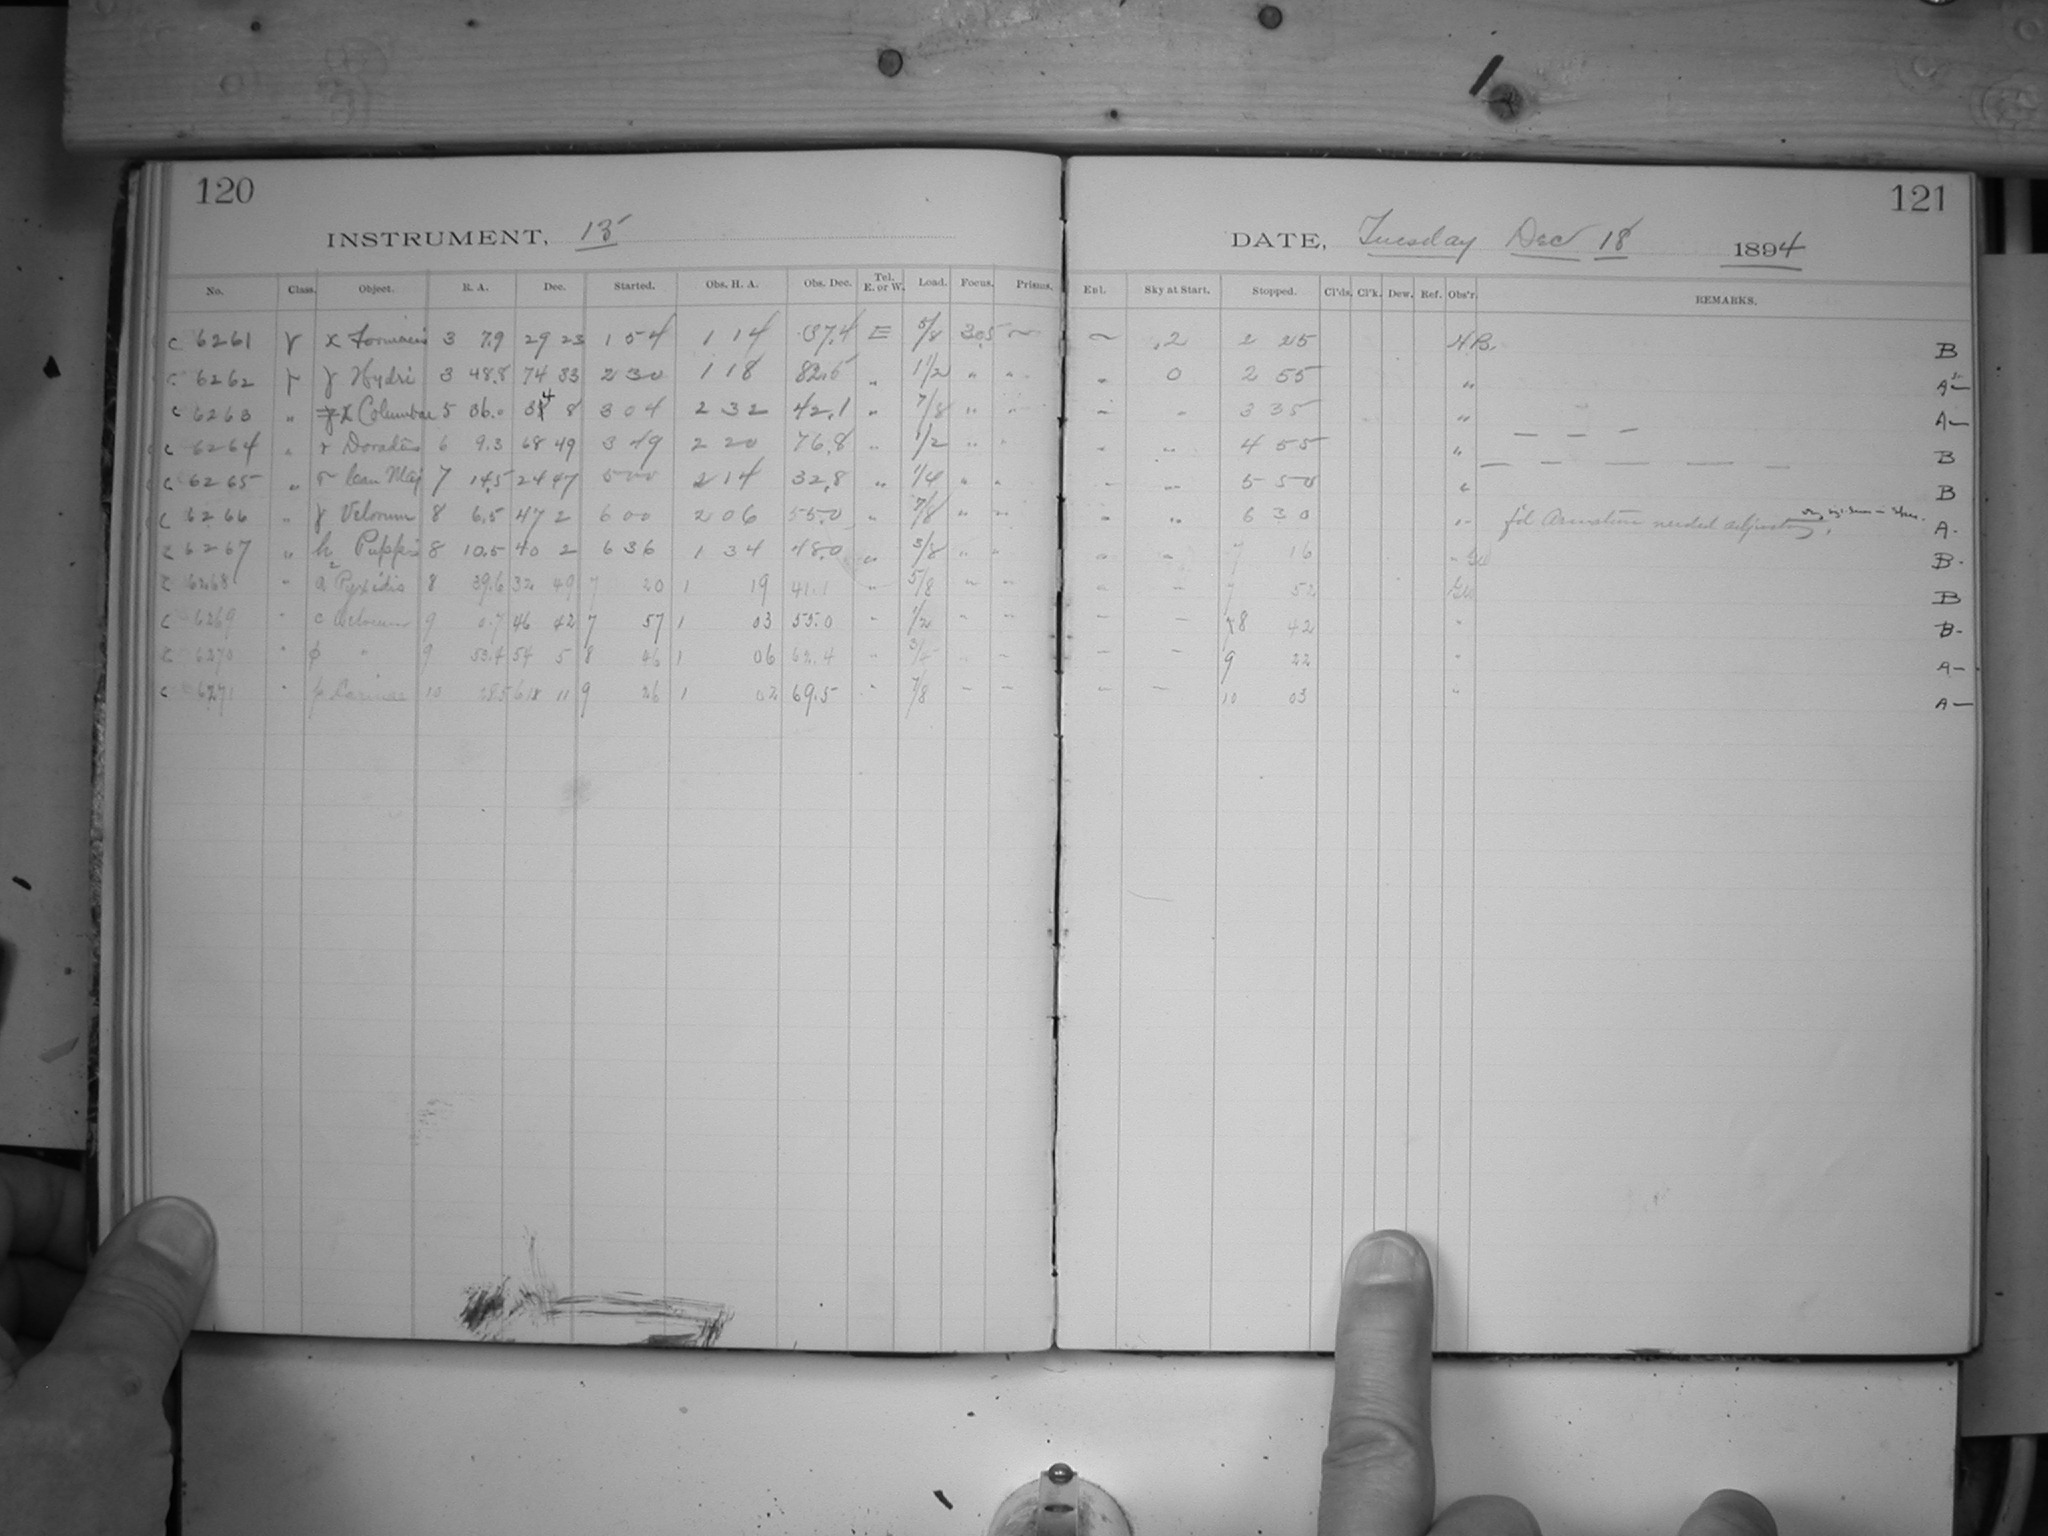 120
INSTRUMENT, 13
No. Class. Object. R. A. Dec. Started. Obs. H. A. Obs. Dec. Tel. E. or W. Load. Focus. Prisms.
C 6261 γ x Fornacis 3 7.9 29 23 1 54 1 14 37.4 E 5/8 30.5 ~
C 6262 γ γ Hydri 3 48.8 74 33 2 30 1 18 82.5 " 1 1/2 " "
C 6263 " x Columbae 5 36.0 34 8 3 04 2 32 42.1 " 7/8 " "
C 6264 " r Doradus 6 9.3 68 49 3 49 2 20 76.8 " 1/2 " "
C 6265 " Can Maj 7 14.5 24 47 5 00 2 14 32.8 " 1/4 " "
C 6266 " γ Velorum 8 6.5 47 2 6 00 2 06 55.0 " 7/8 " "
C 6267 " h² Puppis 8 10.5 40 2 6 36 1 34 48.0 " 3/8 " "
C 6268 " a Pyxidis 8 39.6 32 49 7 20 1 19 41.1 " 5/8 " "
C 6269 " c Velorum 9 0.7 46 42 7 57 1 03 55.0 " 1/2 " "
C 6270 " φ " 9 53.4 54 5 8 46 1 06 62.4 " 3/4 " "
C 6271 " p Carinae 10 28.5 61 11 9 26 1 02 69.5 " 7/8 " "
121
DATE, Tuesday Dec 18 1894
Enl. Sky at Start. Stopped. Cl'ds. Cl'k. Dew. Ref. Obs'r. REMARKS.
~ .2 2 25 B
" 0 2 55 " A
" " 3 35 " — — — A—
" " 4 55 " — — — — — B
" " 5 50 " B
" " 6 30 " f'd Armature needed adjusting, A-
" " 7 16 B-
" " 7 52 B
" " 8 42 " B-
" " 9 22 " A-
" " 10 03 " A—